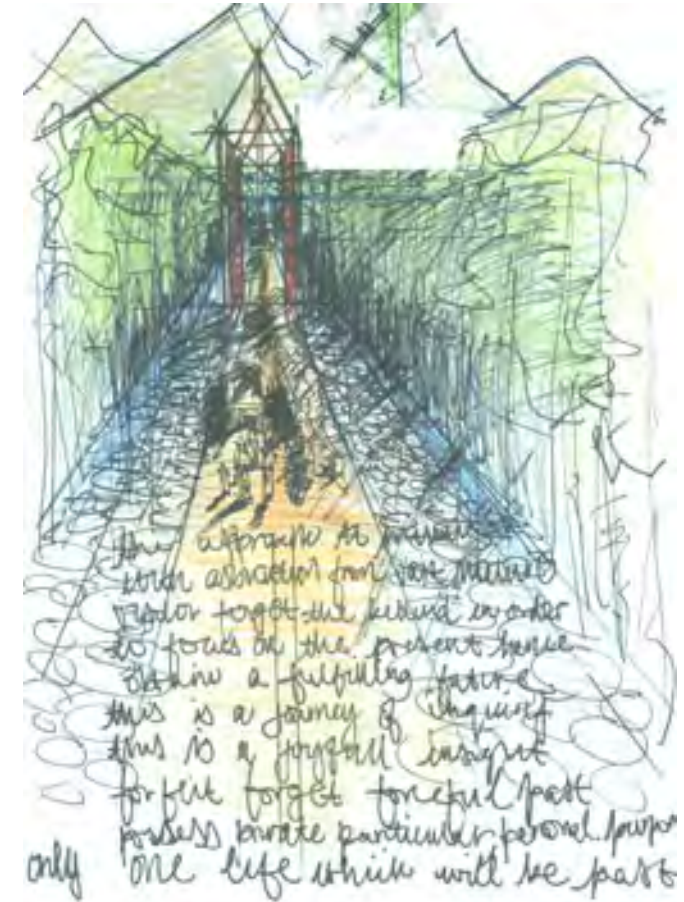 the approach to
from past
forget the behind in order
to focus on the present hence
a fulfilling future
this is a journey of inquiry
this is a joyfull insight
forfeit forget forceful past
possess private particular personal
only one life which will be past